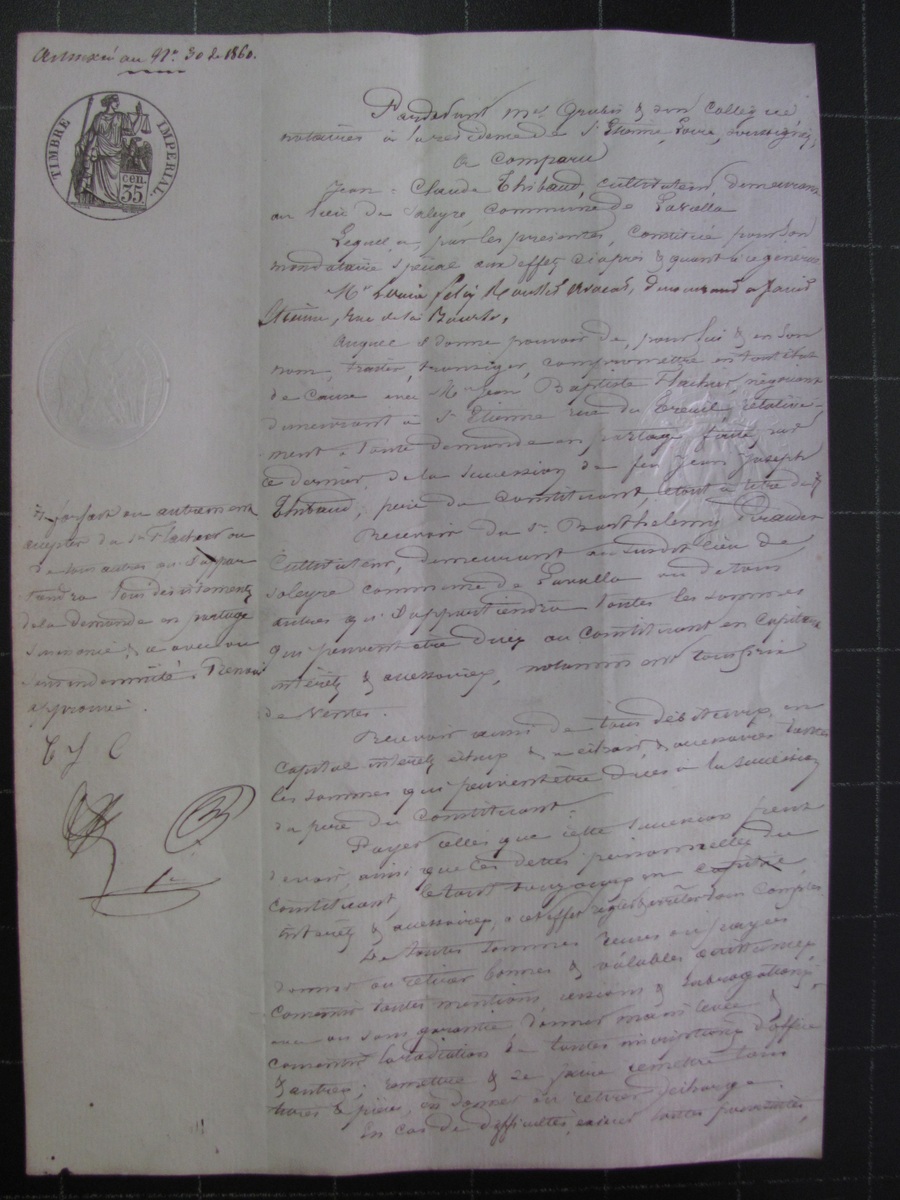 Annexé au No 302 1860.
TIMBRE IMPERIAL.
cen.
35
Pardevant Me & son collègue
notaires à la résidence de St Etienne, Loire, soussignés,
A Comparu
Jean-Claude Thibaud, cultivateur, demeurant
au lieu de Soleyre, commune de Lavalla
Lequel a, par les présentes, constitué pour son
mandataire spécial aux effets ci après & quant à ce général
Mr Louis avocat, demeurant à Saint
Etienne, rue de la Bourse,
Auquel il donne pouvoir de, pour lui & en son
nom, traiter, transiger, compromettre en tout état
de cause avec Mr Jean Baptiste Flachier, négociant
demeurant à St Etienne rue du Treuil, relative-
ment à toute demande en partage faite, sur
ce dernier, de la succession de feu Jean Joseph
Thibaud, père du constituant,
Recevoir du Sr Barthelemy
cultivateur, demeurant au susdit lieu de
Soleyre commune de Lavalla ou de tous
autres qu'il appartiendra toutes les sommes
qui peuvent être dues au constituant en capitaux
intérêts & accessoires, notamment tous prix
de ventes.
Recevoir aussi de tous débiteurs, en
capital intérêts & accessoires toutes
les sommes qui peuvent être dues à la succession
du père du constituant
Payer celles que cette succession peut
devoir, ainsi que les dettes personnelles du
constituant, le tout toujours en capital
intérêts & accessoires, à cet effet régler & arrêter tous comptes
De toutes sommes reçues ou payées
donner ou retirer bonnes & valables quittances
consentir toutes mentions, cessions & subrogations
avec ou sans garantie, donner main levée &
consentir la radiation de toutes inscriptions d'office
& autres; remettre & se faire remettre tous
titres & pièces, en donner ou retirer décharge.
En cas de difficultés, exercer toutes poursuites,
à forfait ou autrement
accepter du Sr Flachier ou
de tous autres qu'il appar
tiendra tous désistements
de la demande en partage
& avec ou
sans indemnité. Renvoi
approuvé.
T J C